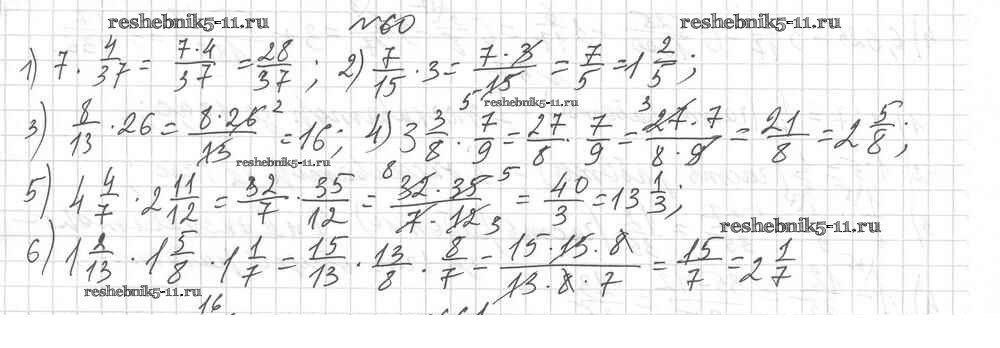 reshebnik5-11.ru №60 reshebnik5-11.ru
1) 7 · 4/37 = 7·4/37 = 28/37 ; 2) 7/15 · 3 = 7·3/15 5 = 7/5 = 1 2/5 ;
reshebnik5-11.ru
3) 8/13 · 26 = 8·26 2/13 = 16; 4) 3 3/8 · 7/9 = 27/8 · 7/9 = 3 27·7/8·9 = 21/8 = 2 5/8 ;
reshebnik5-11.ru
5) 4 4/7 · 2 11/12 = 32/7 · 35/12 = 8 32·35 5/7·12 3 = 40/3 = 13 1/3 ;
reshebnik5-11.ru
6) 1 2/13 · 1 5/8 · 1 1/7 = 15/13 · 13/8 · 8/7 = 15·15·8/13·8·7 = 15/7 = 2 1/7
reshebnik5-11.ru
16